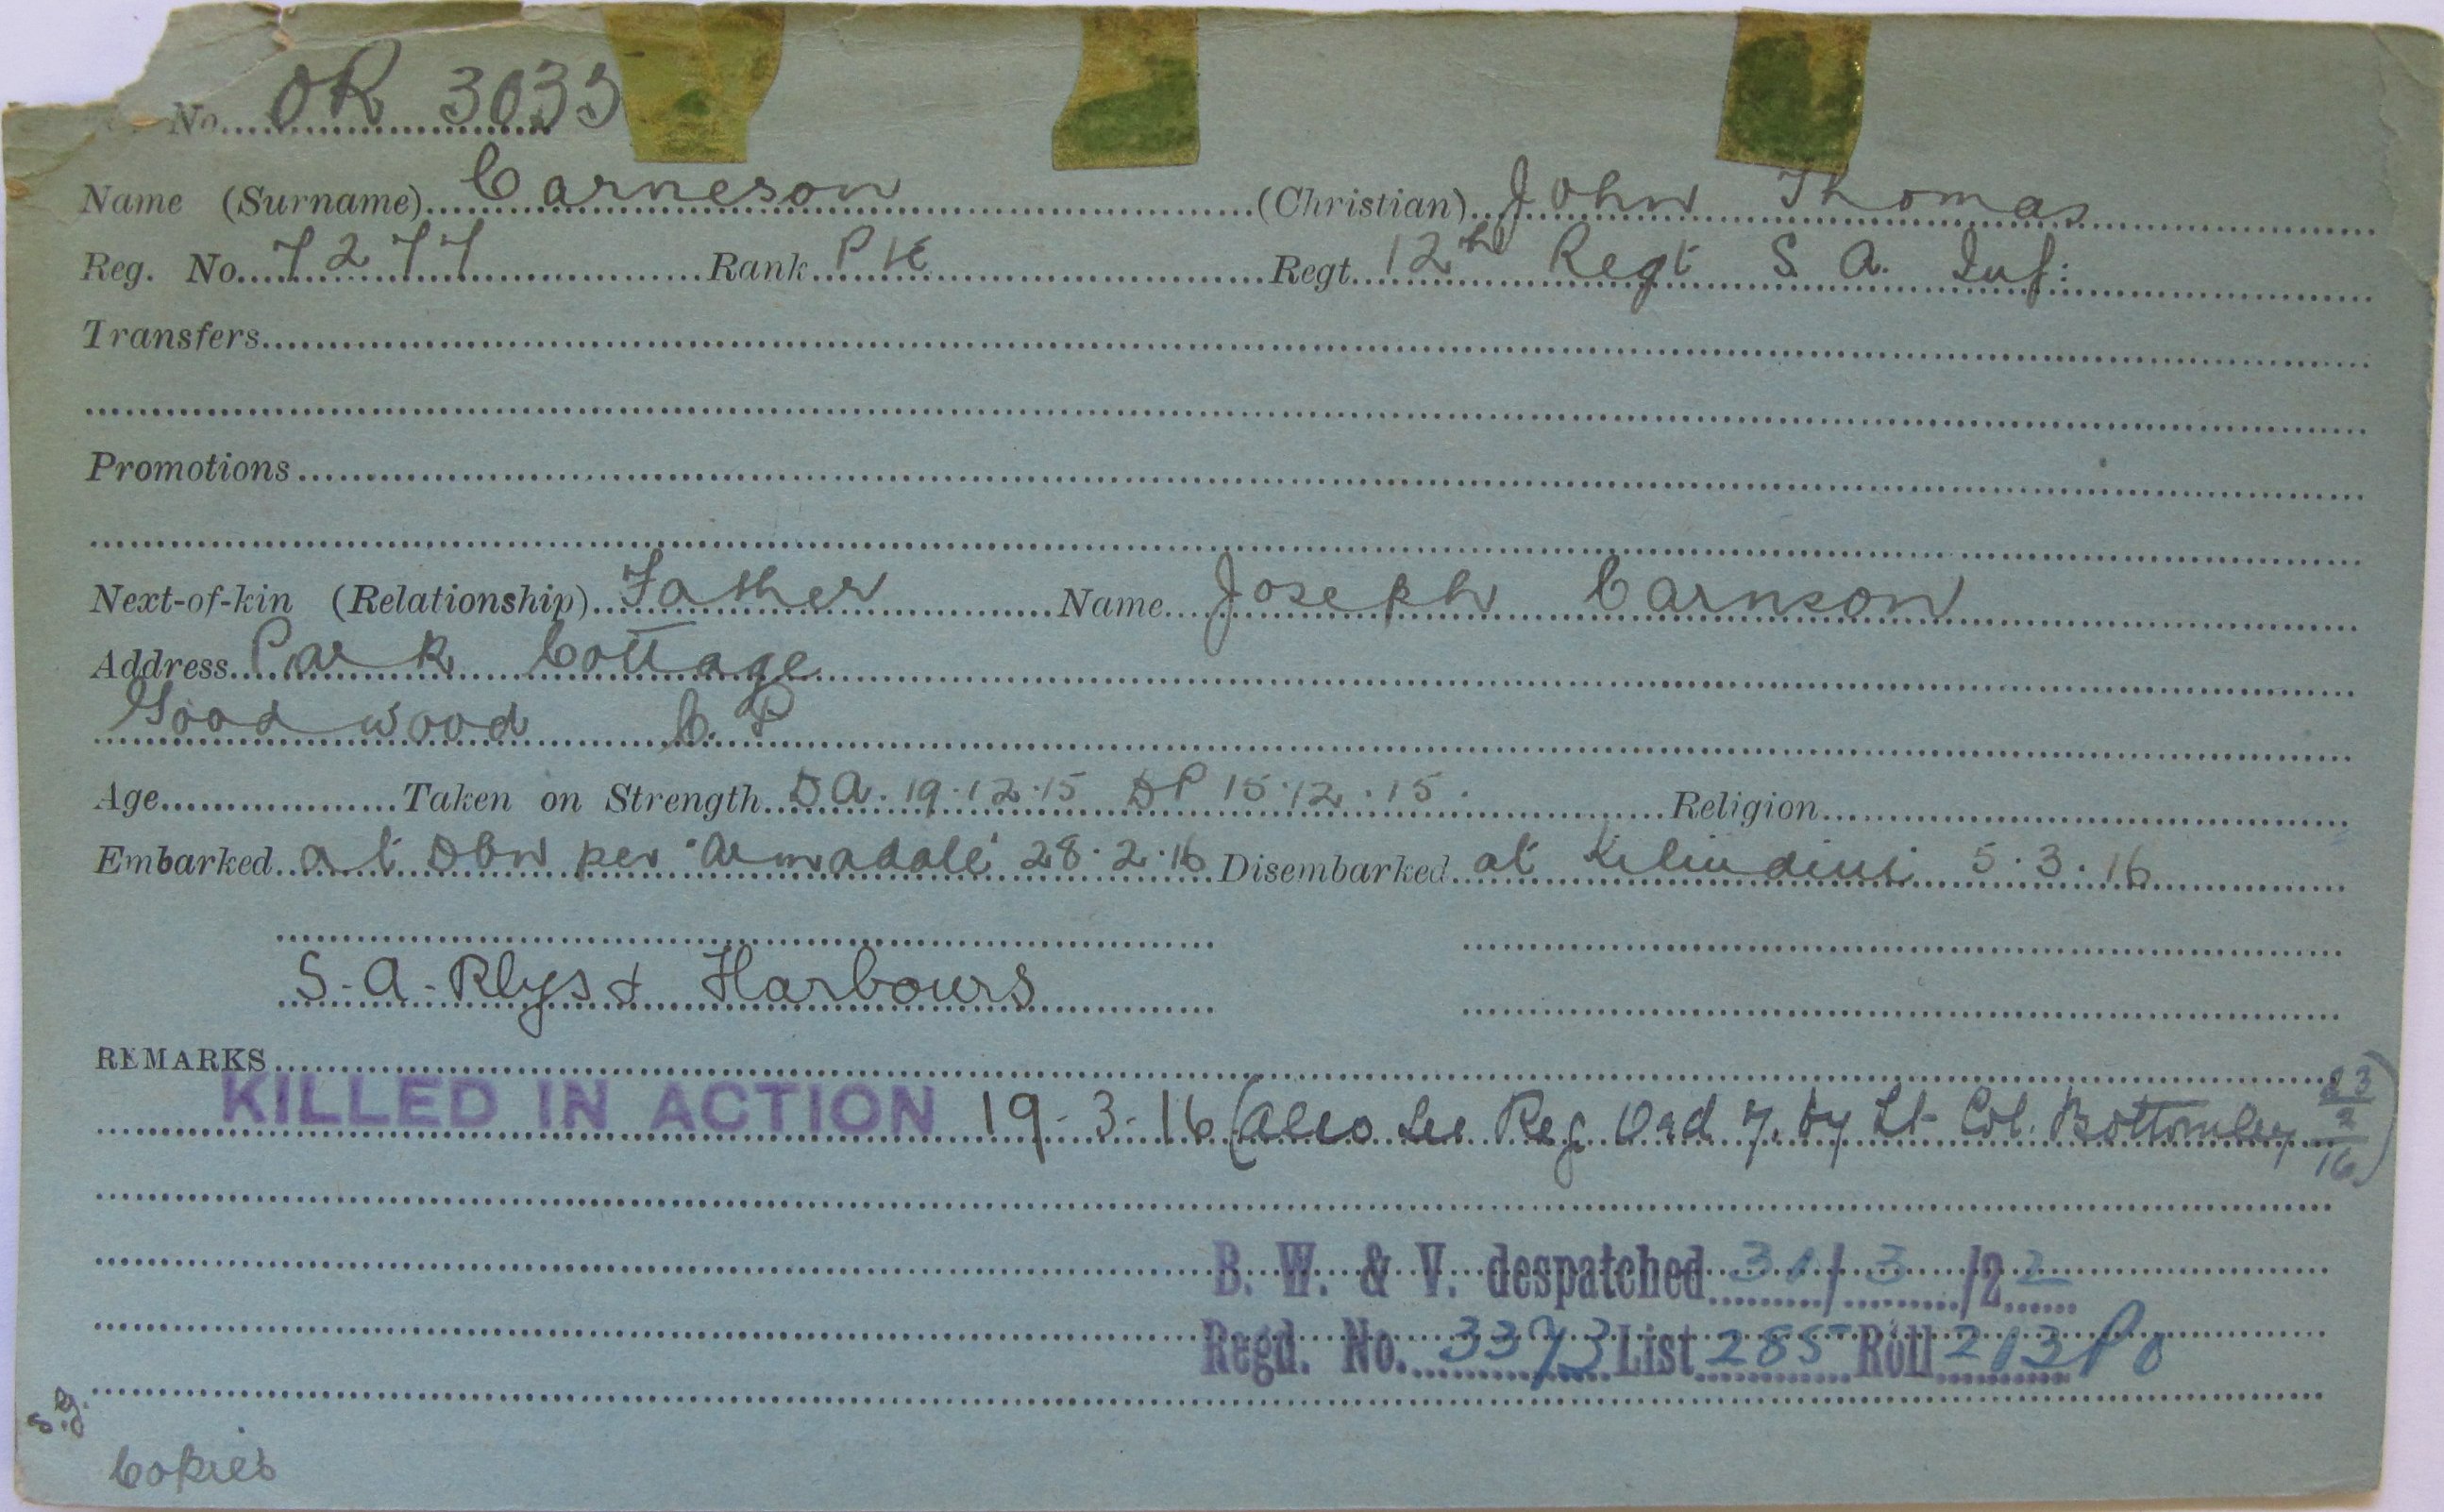 No. OR 3033
Name (Surname) Carneson (Christian) John Thomas
Reg. No. 7277 Rank Pte Regt. 12th Regt S. A. Inf:
Transfers
Promotions
Next-of-kin (Relationship) Father Name Joseph Carnson
Address Park Cottage
Goodwood C. P
Age Taken on Strength DA. 19.12.15 DP 15.12.15. Religion
Embarked at Dbn per "Armadale" 28.2.16 Disembarked at Kilindini 5.3.16
S-A-Rlys & Harbours
REMARKS
KILLED IN ACTION 19-3-16 (also see Reg. Ord 7. by Lt Col. Bottomley 23/2/16)
B. W. & V. despatched 31/3/22
Regd. No. 3373 List 285 Roll 213 PO
Copies